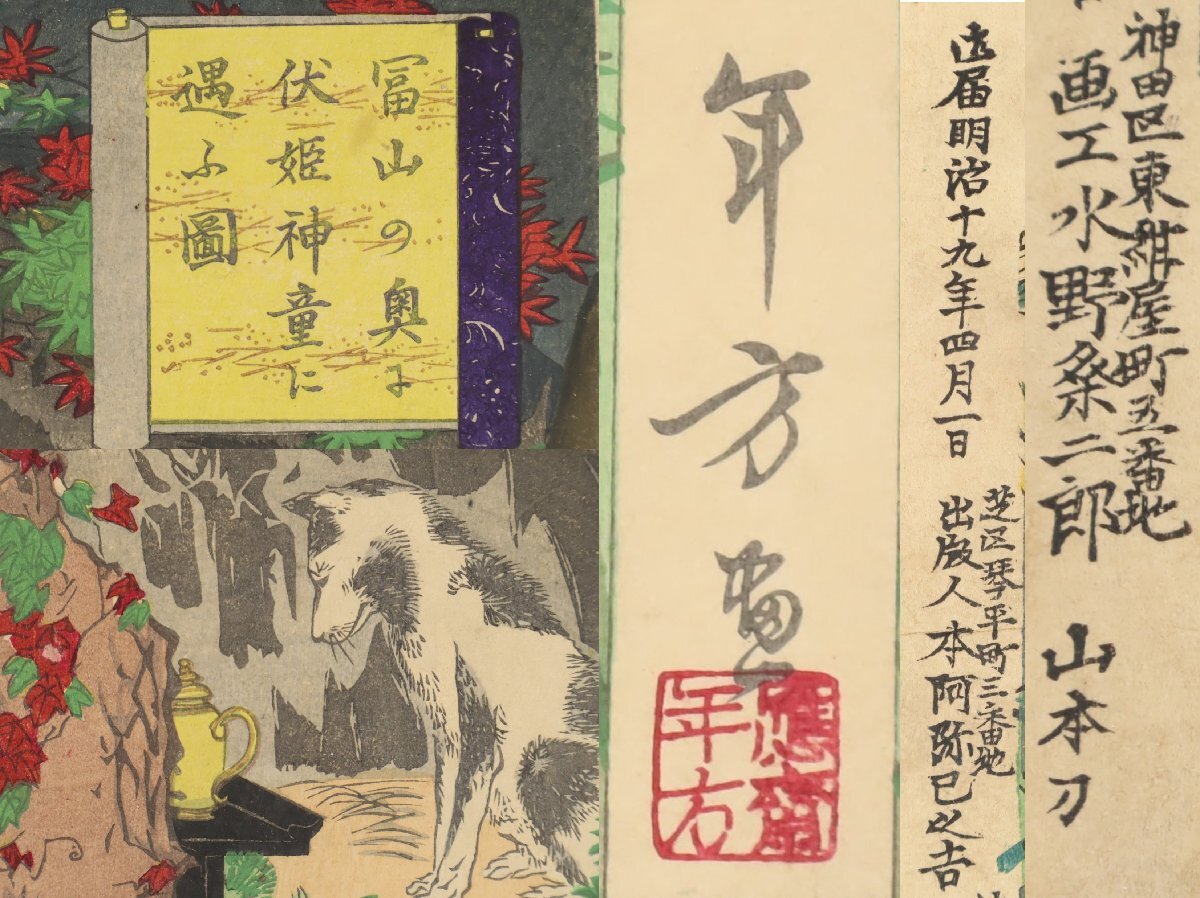 冨山の奥に
伏姫神童に
遇ふ圖
年方画
應需
年方
御届明治十九年四月一日
芝区琴平町三番地
出版人 本阿弥巳之吉
神田区東紺屋町五番地
画工水野粂二郎
山本刀